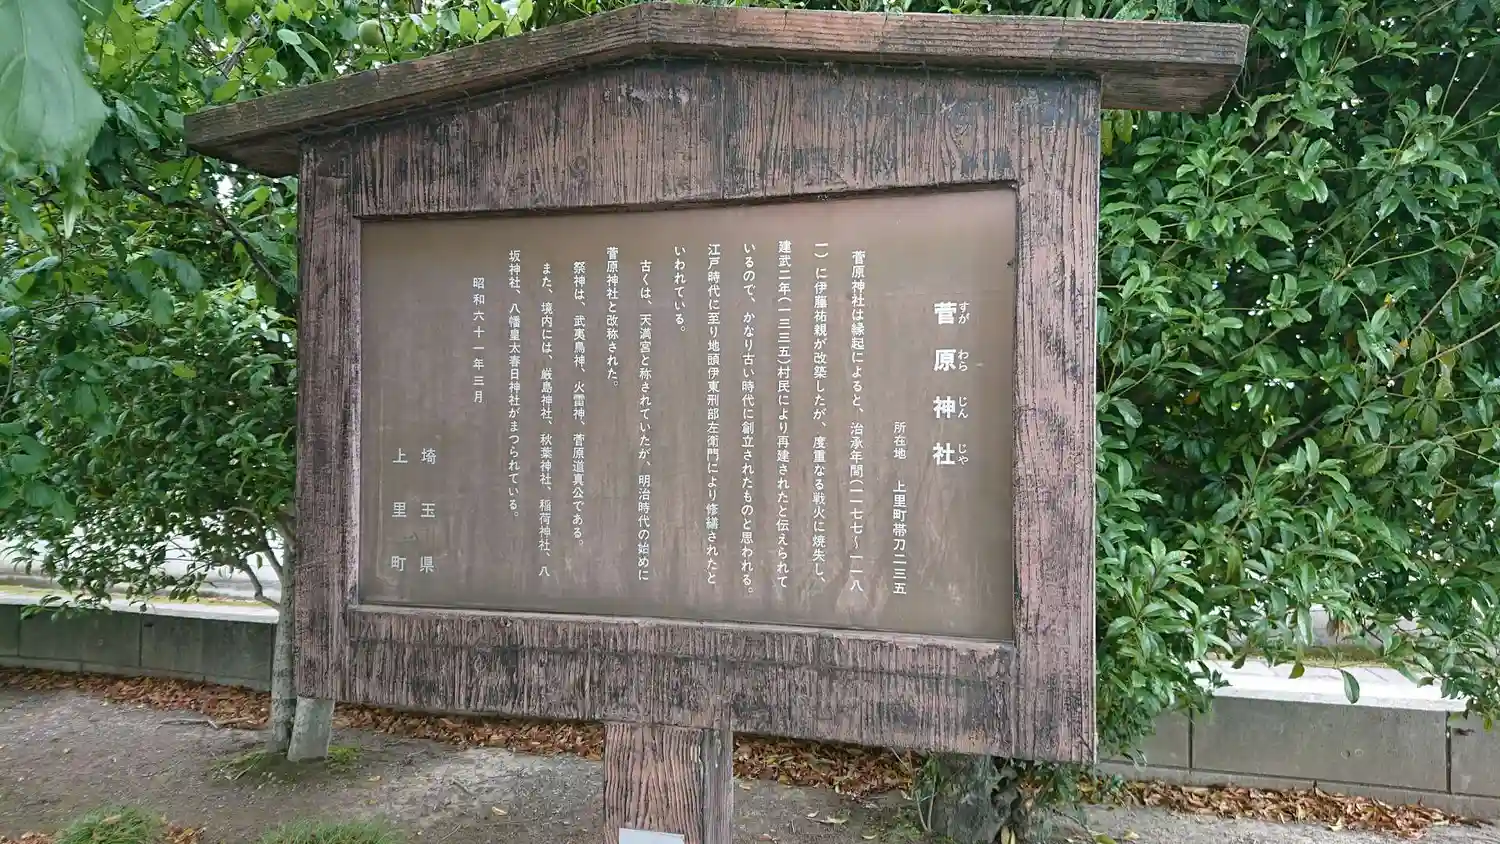 菅原神社
すが わら じん じや
所在地 上里町帯刀二三五
菅原神社は縁起によると、治承年間(一一七七〜一一八
一)に伊藤祐親が改築したが、度重なる戦火に焼失し、
建武二年(一三三五)村民により再建されたと伝えられて
いるので、かなり古い時代に創立されたものと思われる。
江戸時代に至り地頭伊東刑部左衛門により修繕されたと
いわれている。
古くは、天満宮と称されていたが、明治時代の始めに
菅原神社と改称された。
祭神は、武夷鳥神、火雷神、菅原道真公である。
また、境内には、厳島神社、秋葉神社、稲荷神社、八
坂神社、八幡皇太春日神社がまつられている。
昭和六十一年三月
埼玉県
上里町